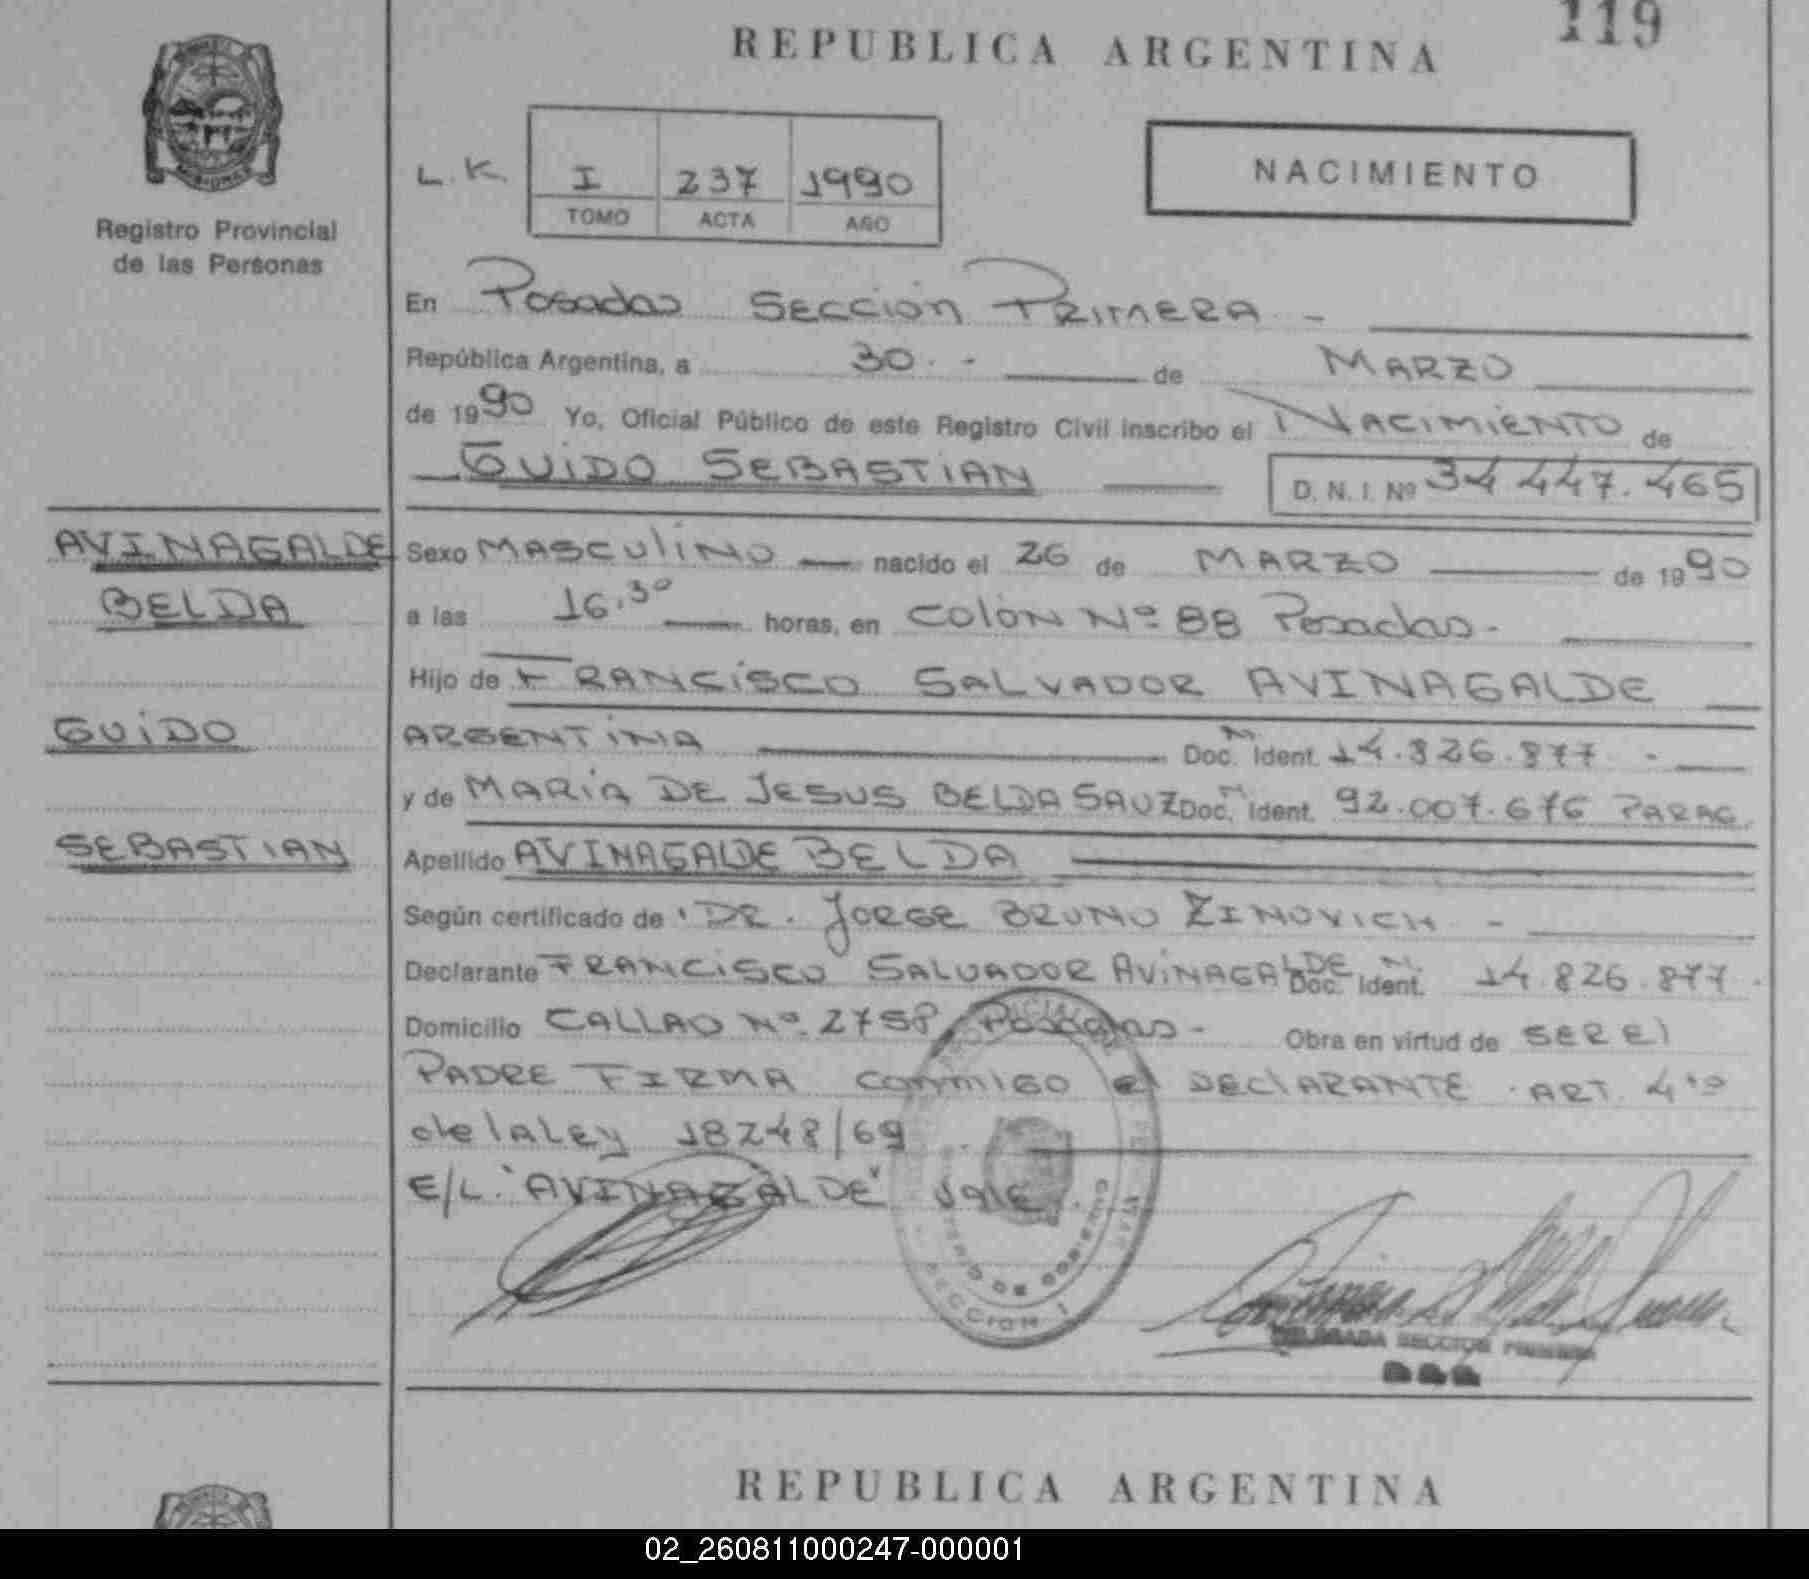 119
REPUBLICA ARGENTINA
L.K. I 237 1990
TOMO ACTA AÑO
NACIMIENTO
Registro Provincial
de las Personas
En Posadas Sección Primera -
República Argentina, a 30.- de MARZO
de 1990 Yo, Oficial Público de este Registro Civil inscribo el NACIMIENTO de
GUIDO SEBASTIAN
D. N. I. Nº 34 447.465
AVINAGALDE
BELDA
GUIDO
SEBASTIAN
Sexo MASCULINO nacido el 26 de MARZO de 1990
a las 16,30 horas, en COLÓN Nº 88 Posadas-
Hijo de FRANCISCO SALVADOR AVINAGALDE
ARGENTINA Doc. M. Ident. 14.826.877 -
y de MARIA DE JESUS BELDA SAUZ Doc. M. Ident. 92.007.676 PARAG.
Apellido AVINAGALDE BELDA
Según certificado de DR. JORGE BRUNO ZINOVICH -
Declarante FRANCISCO SALVADOR AVINAGALDE Doc. M. Ident. 14.826.877.
Domicilio CALLAO Nº Posadas- Obra en virtud de SER El
PADRE FIRMA CONMIGO el DEClARANTE. ART. 4to
de la Ley 18248/69
E/L. "AVINAGALDE" Vale.
MINISTERIO DE GOBIERNO
SECCION I
DELEGADA SECCION PRIMERA
REPUBLICA ARGENTINA
02_260811000247-000001